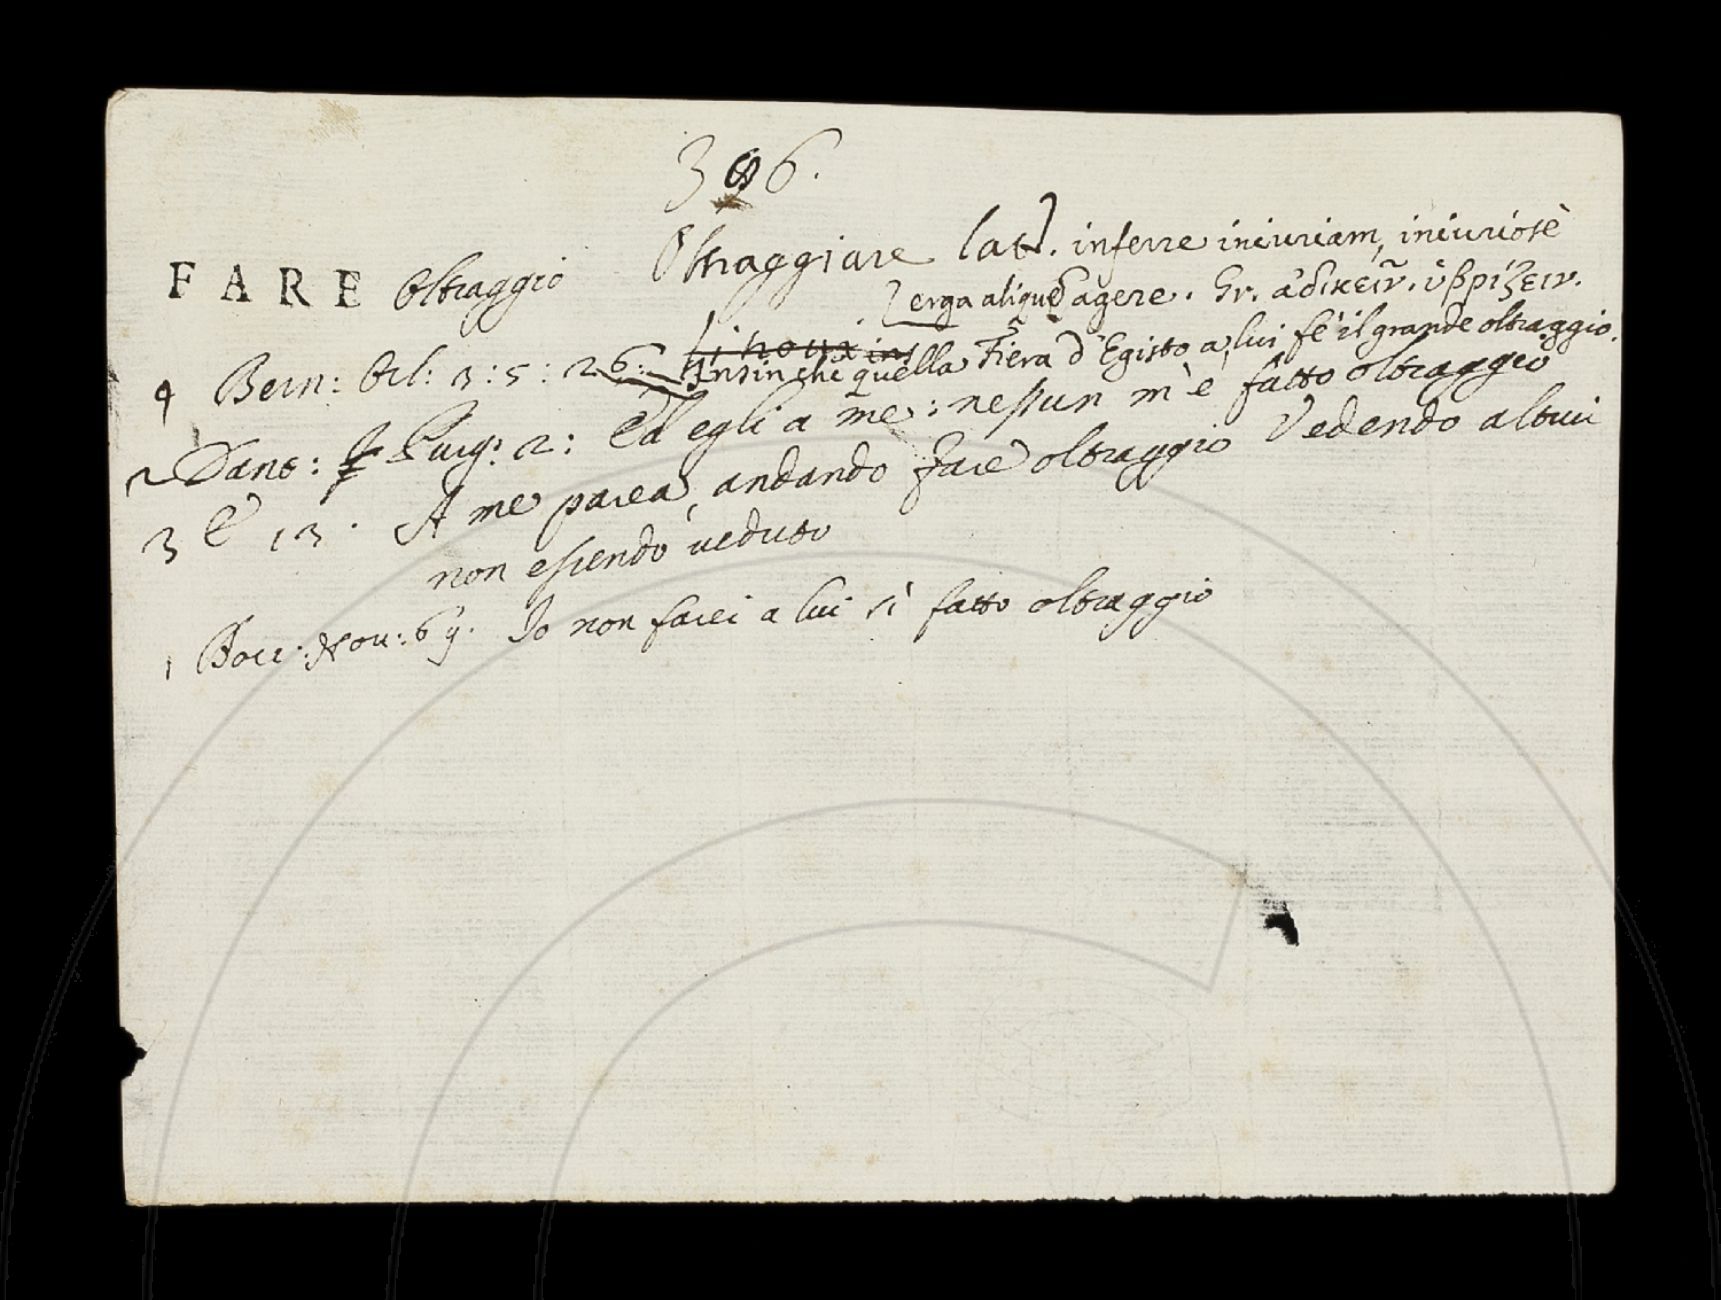 396.
FARE Oltraggio Oltraggiare lat. inferre iniuriam, iniuriosè
erga aliquē agere. Gr. ἀδικεῖν. ὑβρίζειν.
4 Bern: Orl: 3:5:26: Insin che quella Fiera d'Egitto a lui fè il grande oltraggio.
2 Dant: Purg: 2: Ed egli a me: nessun m'è fatto oltraggio
3 E 13. A me parea, andando fare oltraggio Vedendo altrui
non essendo veduto
1 Bocc: Nov: 69. Io non farei a lui sì fatto oltraggio